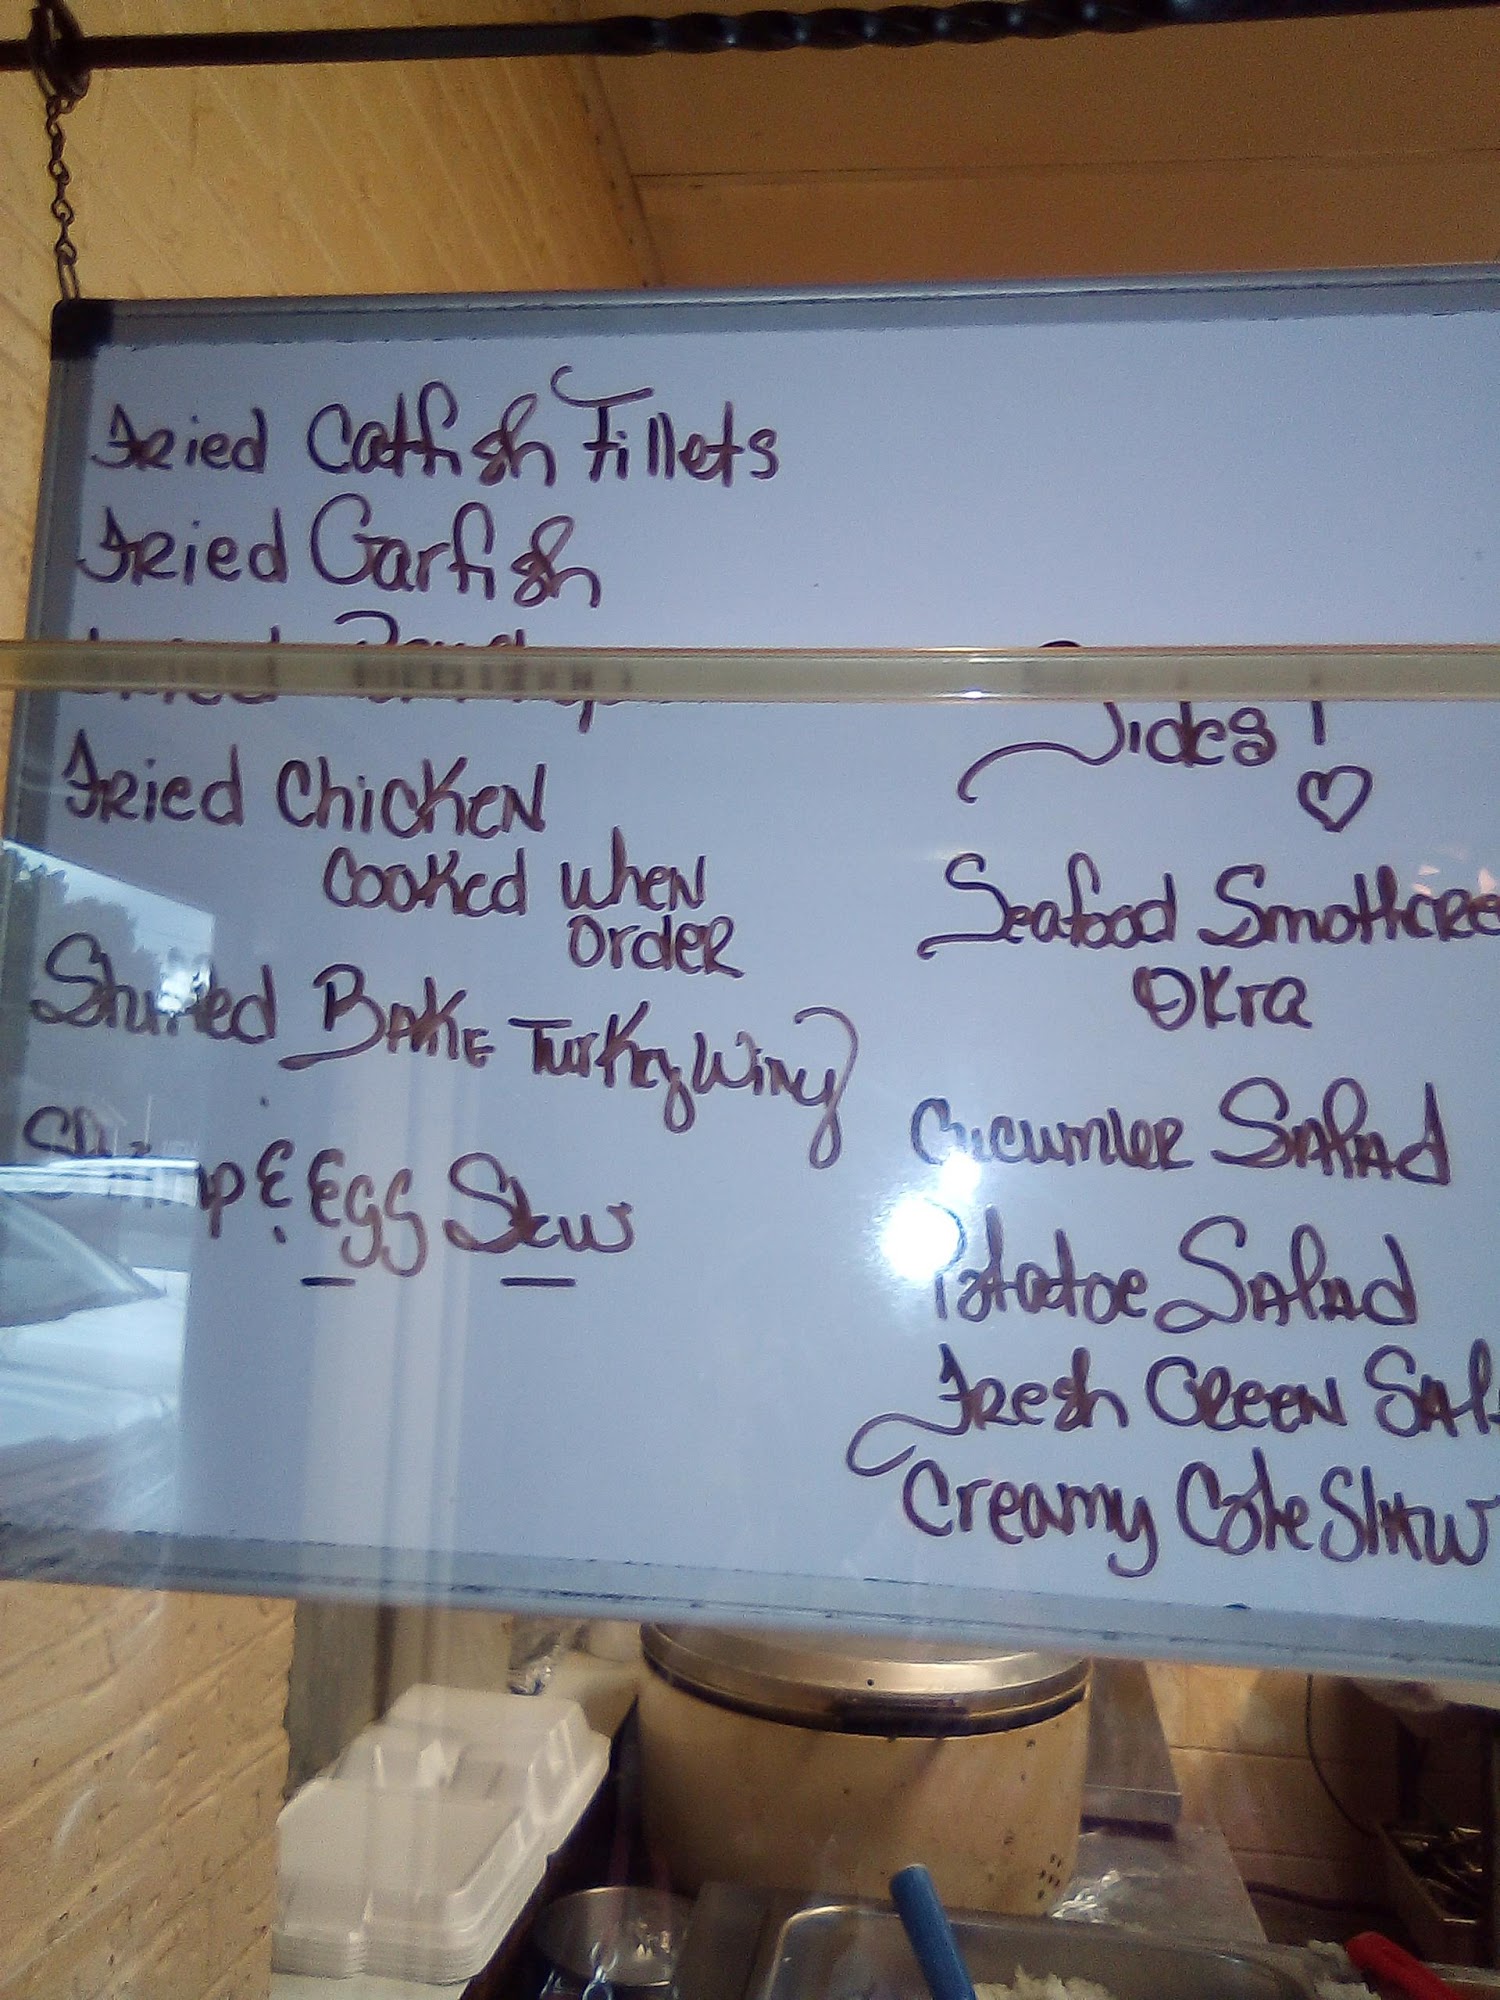 Fried Catfish Fillets
Fried Garfish
Fried
Fried Chicken
Cooked when
Order
Stuffed Bake Turkey Wing
Shrimp & Egg Stew
Sides!
Seafood Smothere
Okra
Cucumber Salad
Potatoe Salad
Fresh Green Sal
Creamy Cole Slaw